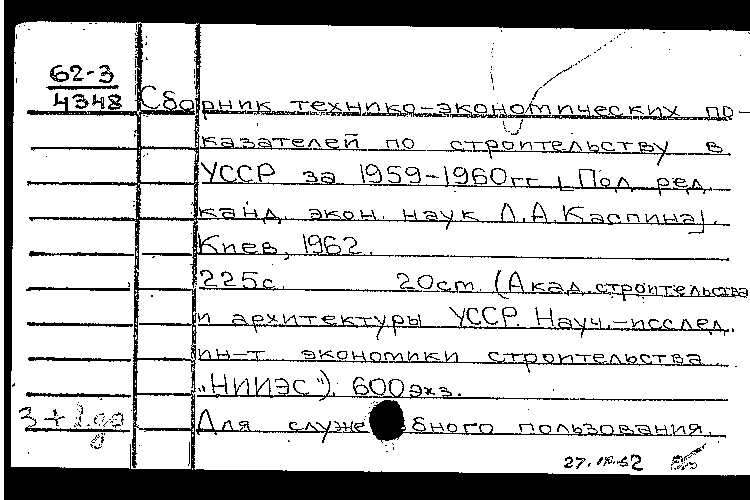 62-3
4348
Сборник технико-экономических по-
казателей по строительству в
УССР за 1959-1960гг [Под ред.
канд. экон. наук Л.А. Каспина].
Киев, 1962.
225с. 20ст. (Акад. строительства
и архитектуры УССР. Науч.-исслед.
ин-т экономики строительства
„НИИЭС"). 600 экз.
Для служебного пользования.
3+1